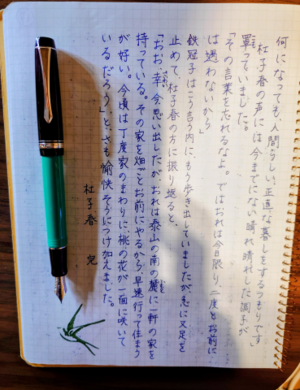 何になっても、人間らしい正直な暮しをするつもりです
杜子春の声には今までにない晴れ晴れした調子が
罩っていました。
「その言葉を忘れるなよ。ではおれは今日限り、二度とお前に
は遇わないから」
鉄冠子はこう言う内に、もう歩き出していましたが、急に又足を
止めて、杜子春の方に振り返ると、
「おお、幸、今思い出したが、おれは泰山の南の麓に一軒の家を
持っている。その家を畑ごとお前にやるから、早速行って住まう
が好い。今頃は丁度家のまわりに、桃の花が一面に咲いて
いるだろう」と、さも愉快そうにつけ加えました。
杜子春 完